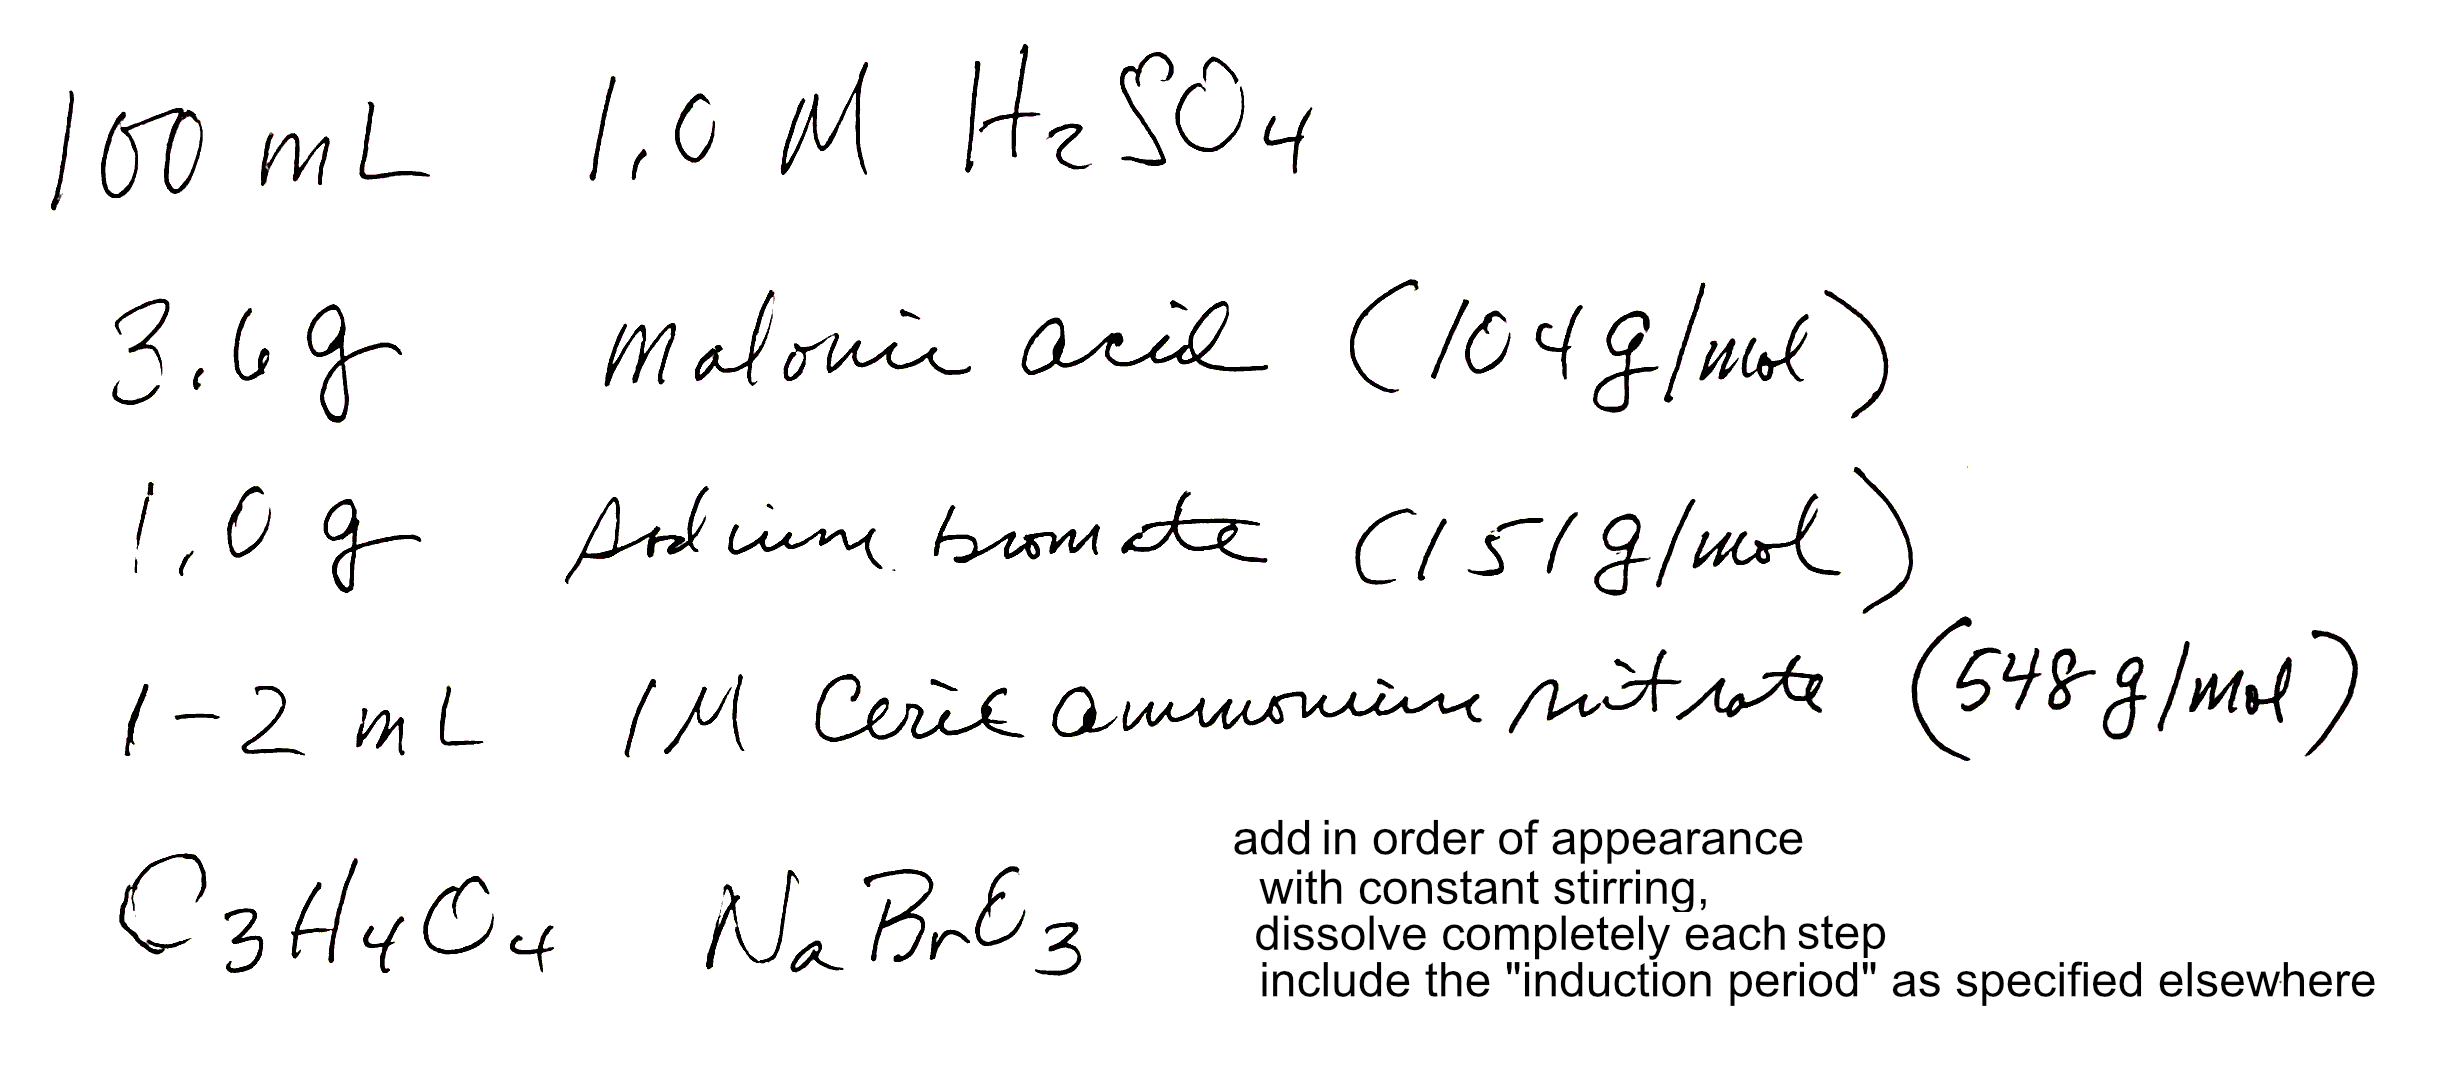 100 mL 1.0 M H₂SO₄
3.6 g malonic acid (104 g/mol)
1.0 g sodium bromate (151 g/mol)
1-2 mL 1M Ceric ammonium nitrate (548 g/mol)
C₃H₄O₄ NaBrO₃
add in order of appearance
with constant stirring,
dissolve completely each step
include the "induction period" as specified elsewhere